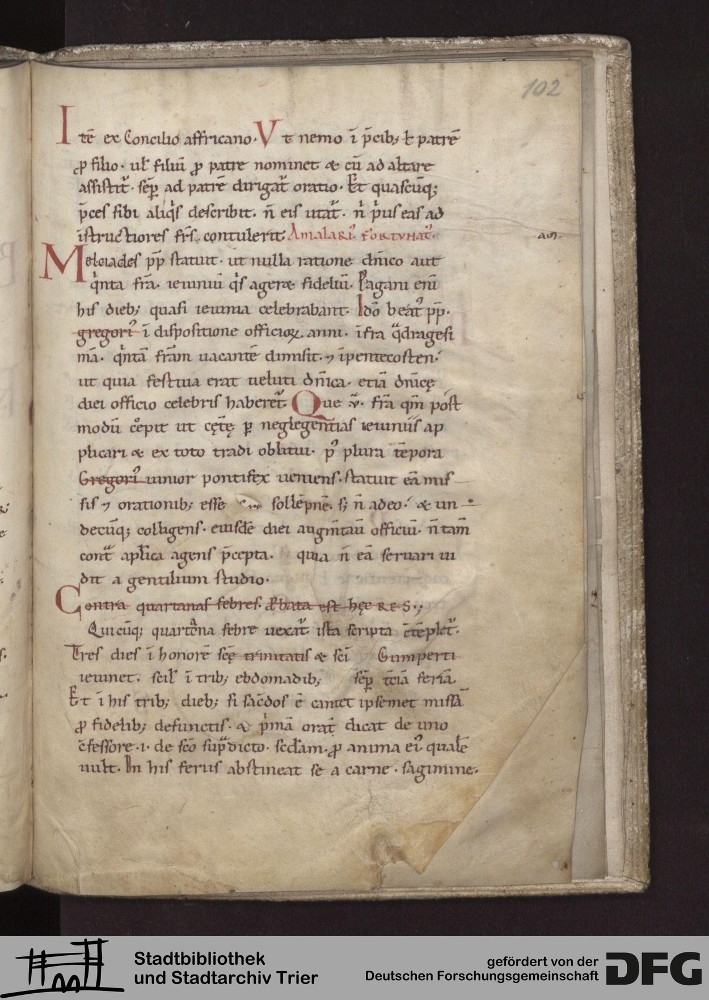 102
Itē ex Concilio affricano. Vt nemo ī p̄cib; ł patrē
ꝓ filio. uł filiū ꝓ patre nominet & cū ad altare
assistit᷑. sēp ad patrē dirigat᷑ oratio. Et quascūq;
p̄ces sibi aliq̄s describit. n̄ eis utat᷑. n̄ p̄us eas ad
īstructiores fr̄s contulerit. Amalarī Fortvnat᷑.
Melciades p̄p statuit. ut nulla ratione dn̄ico aut
q̄nta fr̄a. ieiuniū q̄s agere fideliū. Pagani eni
his dieb; quasi ieiunia celebrabant. Idō beat᷒ p̄p.
gregori᷒ ī dispositione officioꝝ. anni. īfra q̄dragesi
mā. q̄ntā frām uacantē dimisit. ⁊ īpentecosten.
ut quia festiua erat ueluti dn̄ica. etiā dn̄icę
diei officio celebris haberet᷑. Que v̄. fr̄a qm̄ post
modū cępit ut cętę ꝑ neglegentias ieiuniis ap
plicari & ex toto tradi obliuii. p᷒ plura tēpora
Gregori᷒ iunior pontifex ueniens. statuit eā mis
sis ⁊ orationib; esse sollēpnē. s; n̄ adeo. & un
decūq; colligens. eiusdē diei augm̄tau officiū. n̄ tam̄
cont᷑ ap̄lica agens p̄cepta. quia n̄ eā seruari ui
dit a gentilium studio.
Contra quartanas febres. ꝓbata est hęc RES.
Quicūq; quartana febre uexat᷑ ista scripta c̄tēplet᷑.
Tres dies ī honorē scę trinitatis & sc̄i Gumperti
ieiunet. scil ī trib; ebdomadib; sēp tc̄ia feriā
Et ī his trib; dieb; si sac̄dos ē cantet ipsemet missā
ꝓ fidelib; defunctis. & p̄mā orat᷑ dicat de uno
c̄fessore .i. de sc̄o sup̄dicto. scdam. ꝓ anima ei᷒ qualē
uult. In his feriis abstineat se a carne. sagimine.
Stadtbibliothek
und Stadtarchiv Trier
gefördert von der
Deutschen Forschungsgemeinschaft
DFG